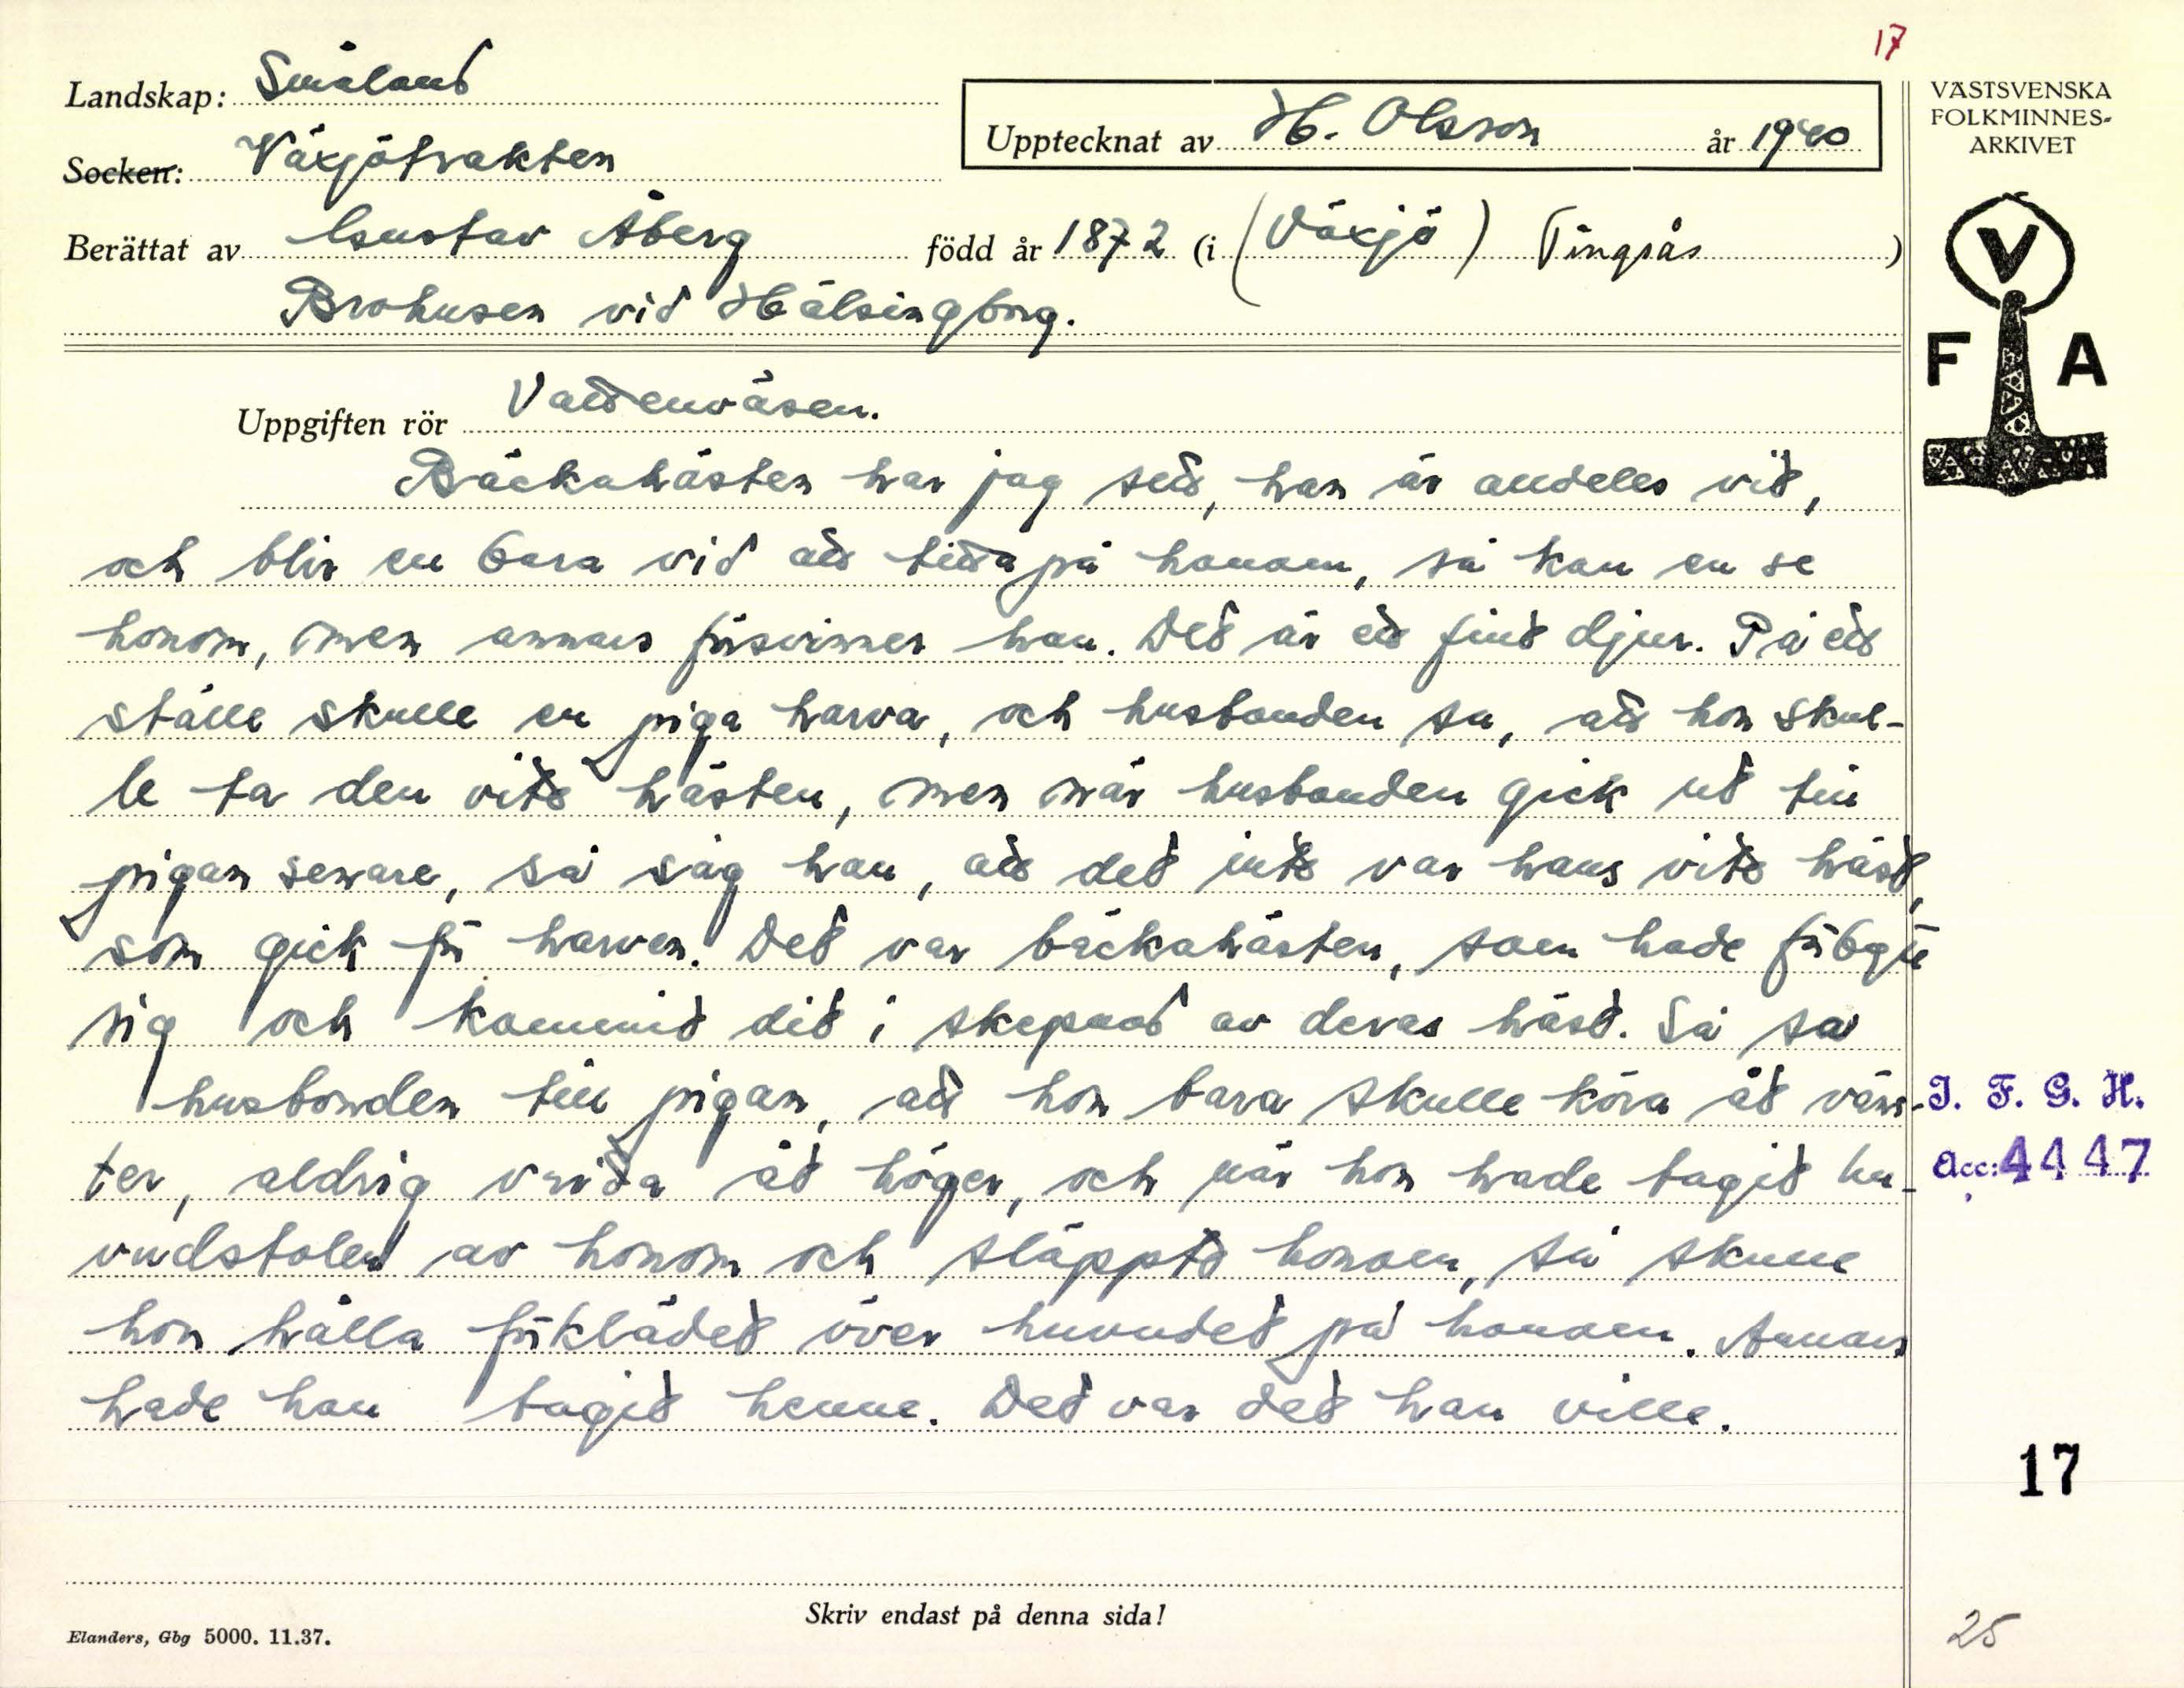 17
Landskap: Småland
Socken: Växjötrakten
Upptecknat av H. Olsson år 1940
VÄSTSVENSKA
FOLKMINNES-
ARKIVET
Berättat av Gustav Åberg född år 1872 (i (Växjö) Tingsås)
Brohusen vid Hälsingborg.
V
F A
Uppgiften rör Vattenväsen.
Bäckahästen har jag sett, han är alldeles vit,
och blir en bara vid att titta på honom, så kan en se
honom, men annars försvinner han. Det är ett fint djur. På ett
ställe skulle en piga harva, och husbonden sa, att hon skul-
le ta den vite hästen, men när husbonden gick ut till
pigan senare, så såg han, att det inte var hans vite häst,
som gick för harven. Det var bäckahästen, som hade förbyt
sig och kommit dit i skepnad av deras häst. Så sa
husbonden till pigan, att hon bara skulle köra åt väns-
ter, aldrig vrida åt höger, och när hon hade tagit hu-
vudstolen av honom och släppte honom, så skulle
hon hålla förklädet över huvudet på honom. Annars
hade han tagit henne. Det var det han ville.
I. F. G. H.
Acc: 4447
17
Skriv endast på denna sida!
Elanders, Gbg 5000. 11.37.
25